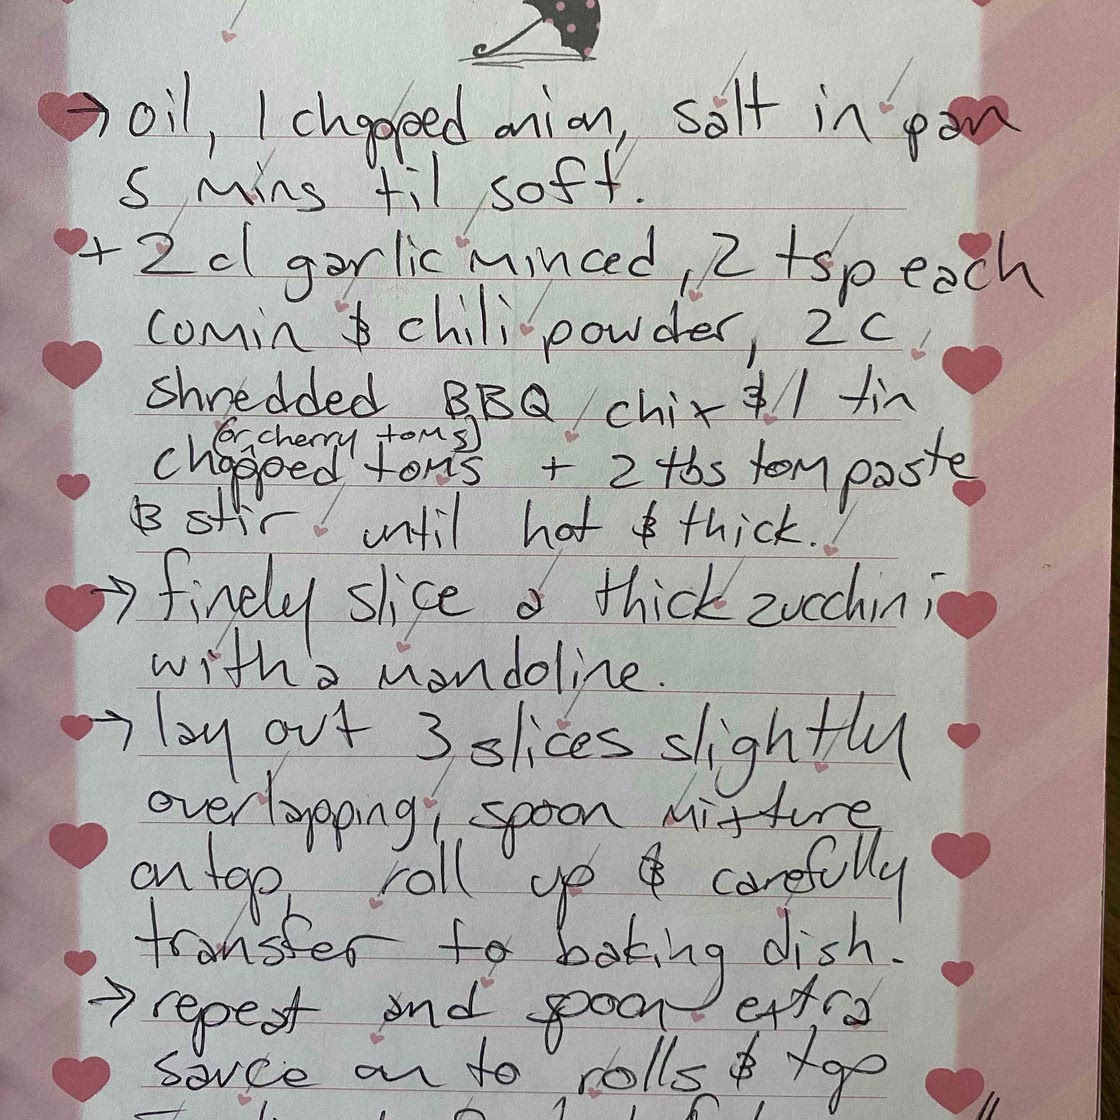 → oil, 1 chopped onion, salt in pan
5 mins til soft.
+ 2 cl garlic minced, 2 tsp each
comin & chili powder, 2 C
shredded BBQ chix & 1 tin
(or cherry toms)
chopped toms + 2 tbs tom paste
& stir until hot & thick.
→ finely slice a thick zucchini
with a mandoline.
→ lay out 3 slices slightly
overlapping, spoon mixture
on top, roll up & carefully
transfer to baking dish.
→ repeat and spoon extra
sauce on to rolls & top